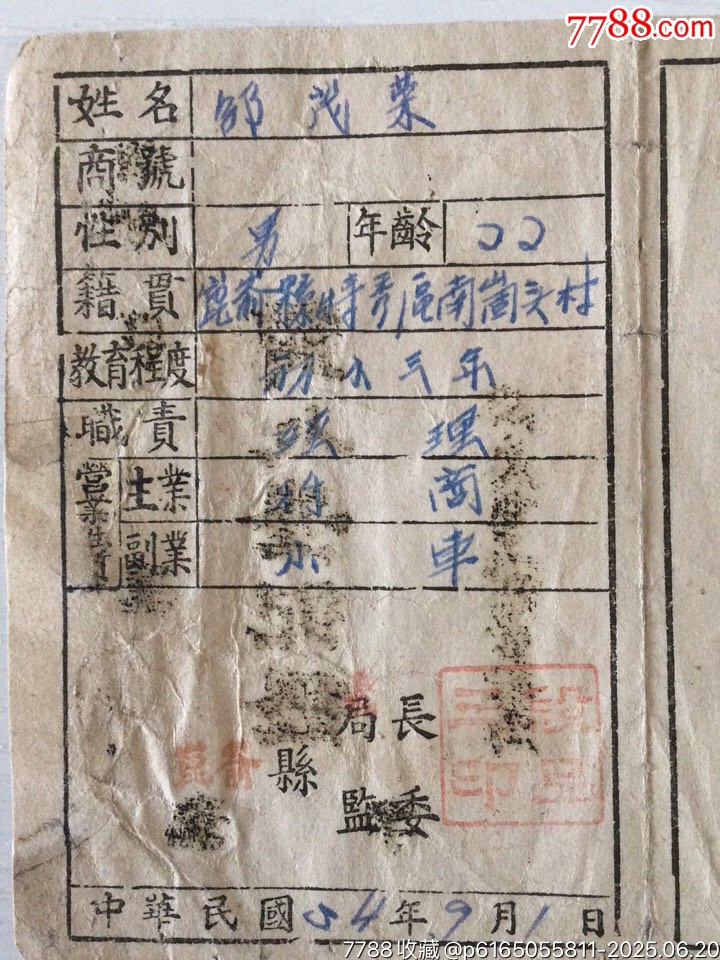 7788.com
姓名 邹茂荣
商號
性别 男 年齡 22
籍貫 崑嵛縣 區南崮头村
教育程度 初小三年
職責 经理
營業 主業 行商
副業 小車
局長
崑嵛縣
監委
中華民國34年9月1日
7788收藏@p6165055811-2025.06.20